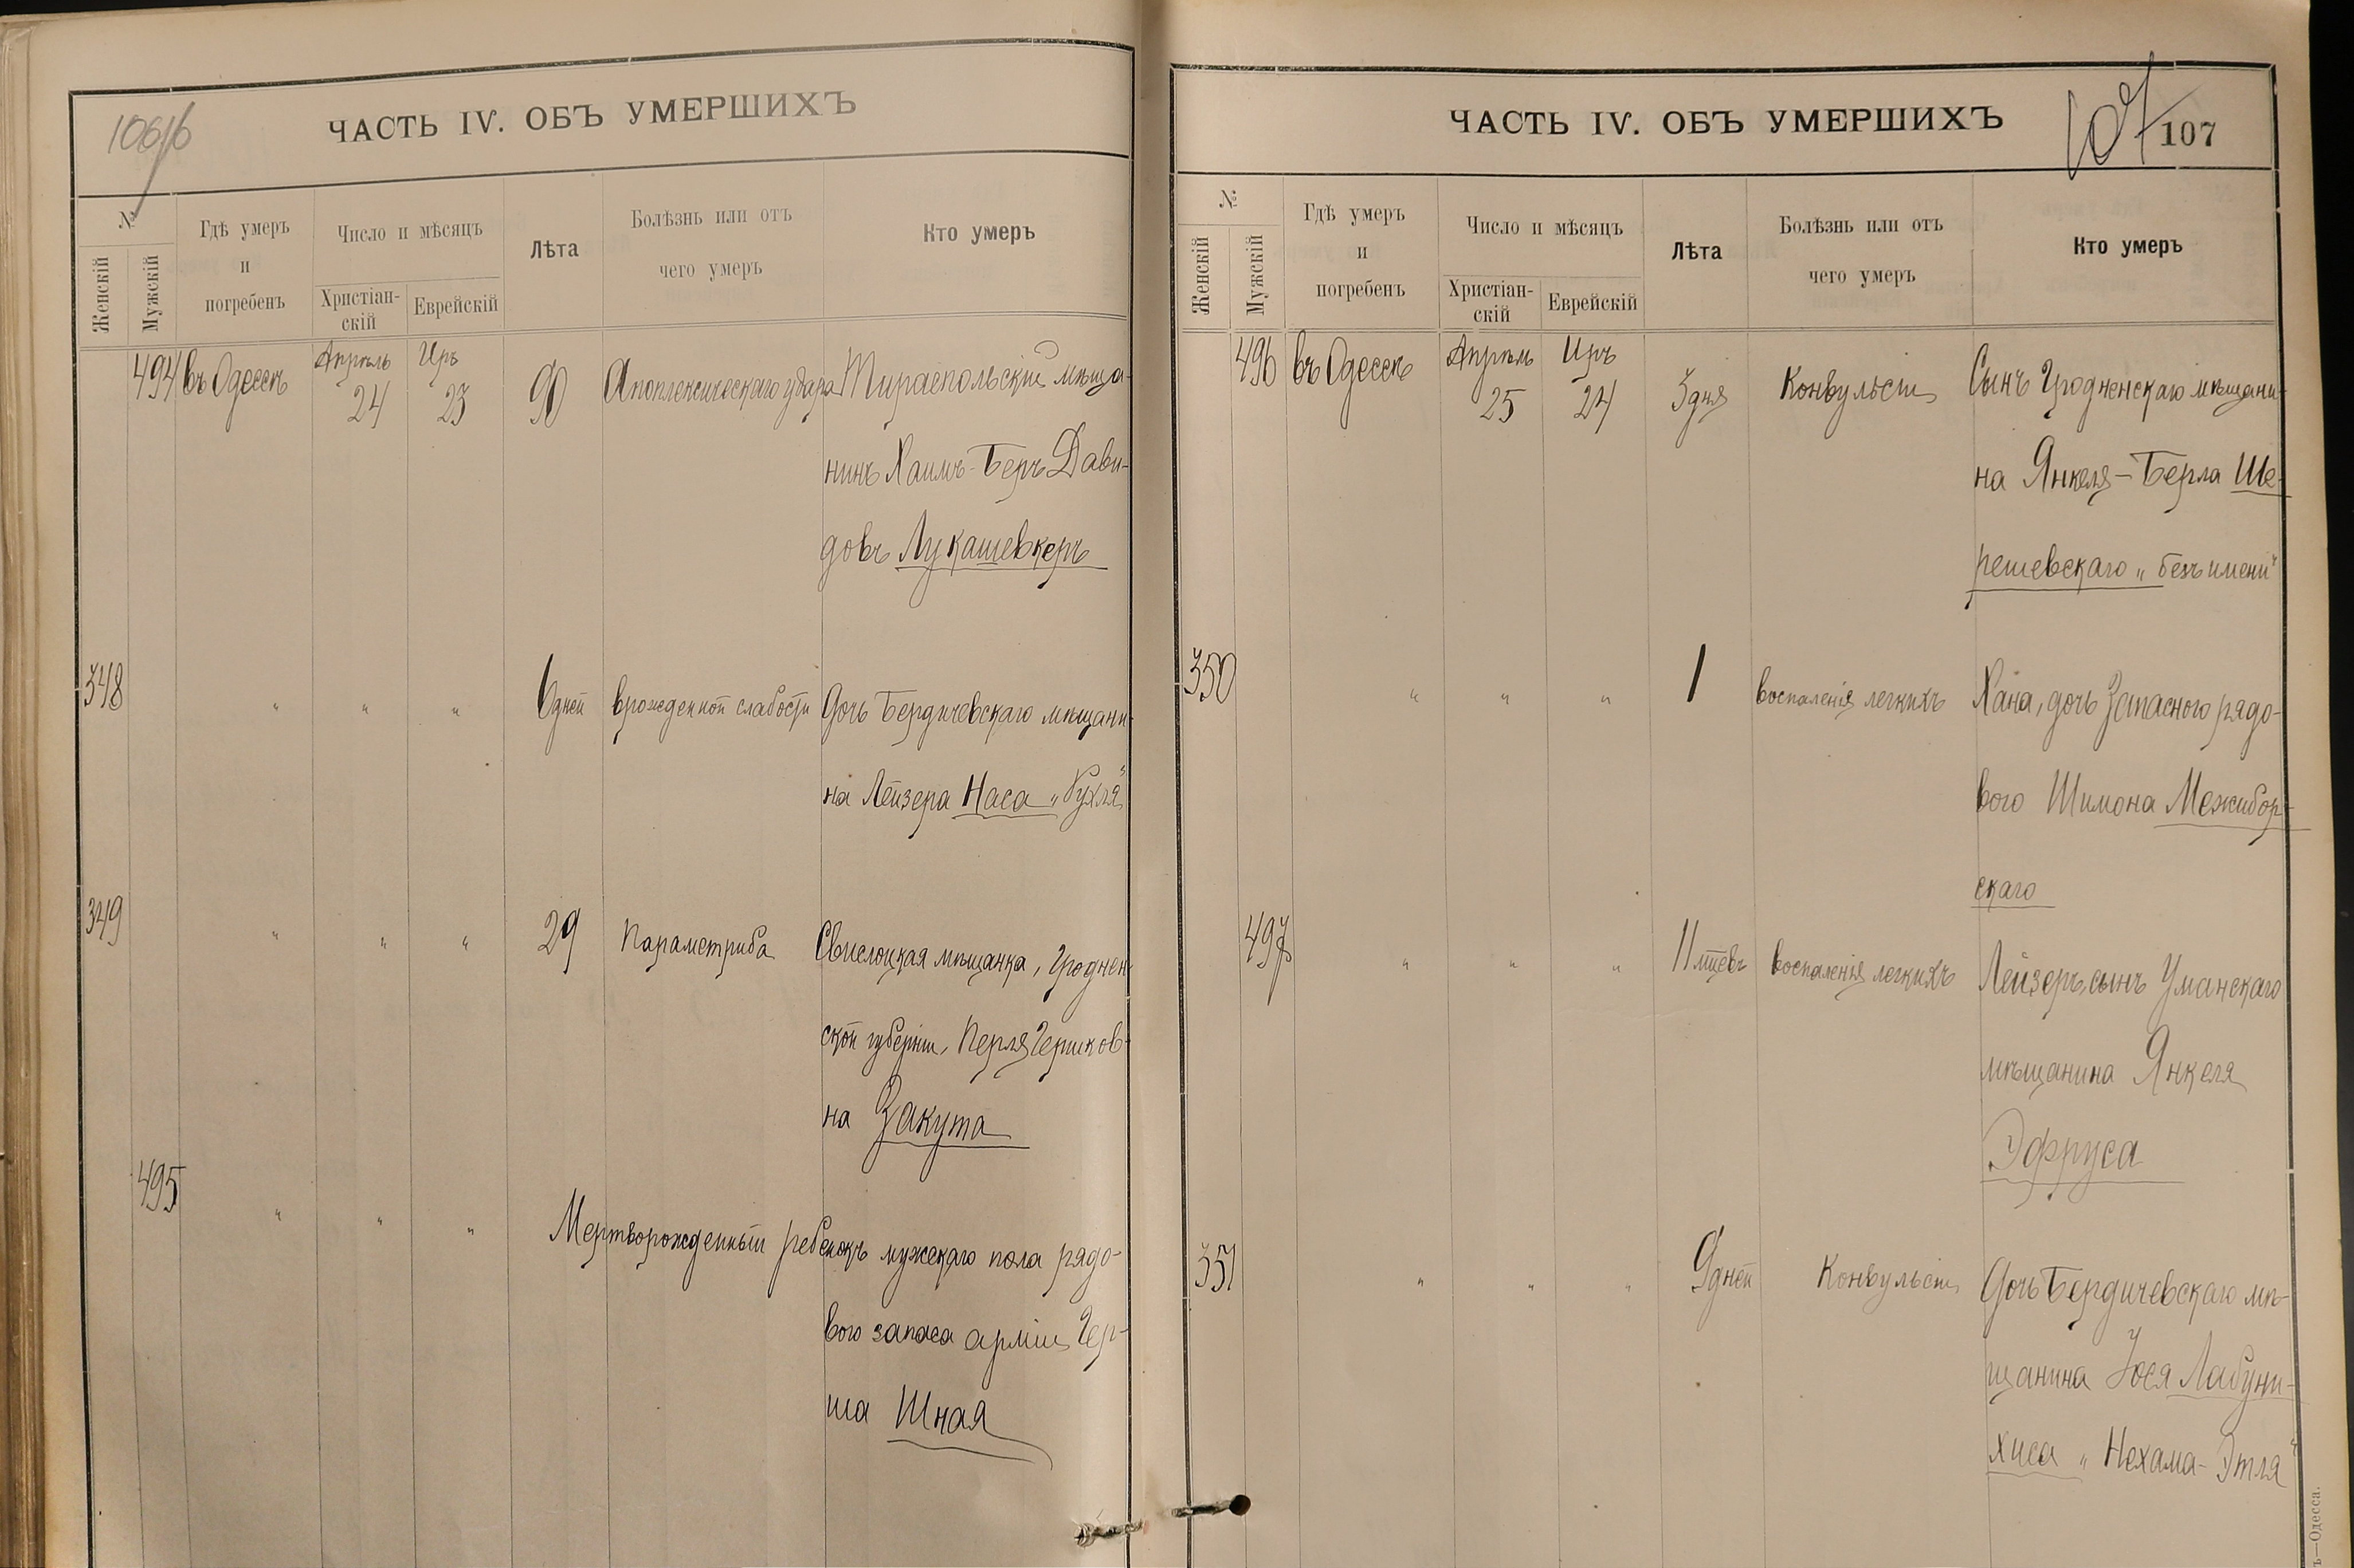 106/б
ЧАСТЬ IV. ОБЪ УМЕРШИХЪ
№
Женскій
Мужскій
Гдѣ умеръ
и
погребенъ
Число и мѣсяцъ
Христіан-
скій
Еврейскій
Лѣта
Болѣзнь или отъ
чего умеръ
Кто умеръ
494 въ Одессѣ Апрѣль 24 Иръ 23 90 Апоплексическаго удара Тираспольскій мѣща-
нинъ Хаимъ-Беръ Дави-
довъ Лукашевкеръ
348 " " " 6 дней врожденной слабости Дочь Бердичевскаго мѣщани-
на Лейзера Наса „Рухля"
349 " " " 29 Параметрита Свислоцкая мѣщанка, Гроднен-
ской губерніи, Перля Гершков-
на Закута
495 " " " Мертворожденный ребенокъ мужскаго пола рядо-
вого запаса арміи Гер-
ша Шная
ЧАСТЬ IV. ОБЪ УМЕРШИХЪ
107 107
№
Женскій
Мужскій
Гдѣ умеръ
и
погребенъ
Число и мѣсяцъ
Христіан-
скій
Еврейскій
Лѣта
Болѣзнь или отъ
чего умеръ
Кто умеръ
496 въ Одессѣ Апрѣль 25 Иръ 24 3 дня Конвульсіи Сынъ Гродненскаго мѣщани-
на Янкеля-Берла Ше-
решевскаго „Безъ имени"
350 " " " 1 воспаленія легкихъ Хана, дочь Запасного рядо-
вого Шимона Межибор-
скаго
497 " " " 11 мцевъ воспаленія легкихъ Лейзеръ, сынъ Уманскаго
мѣщанина Янкеля
Эфруса
351 " " " 9 дней Конвульсіи Дочь Бердичевскаго мѣ-
щанина Іося Лабуни-
хиса „Нехама-Этля"
ъ—Одесса.